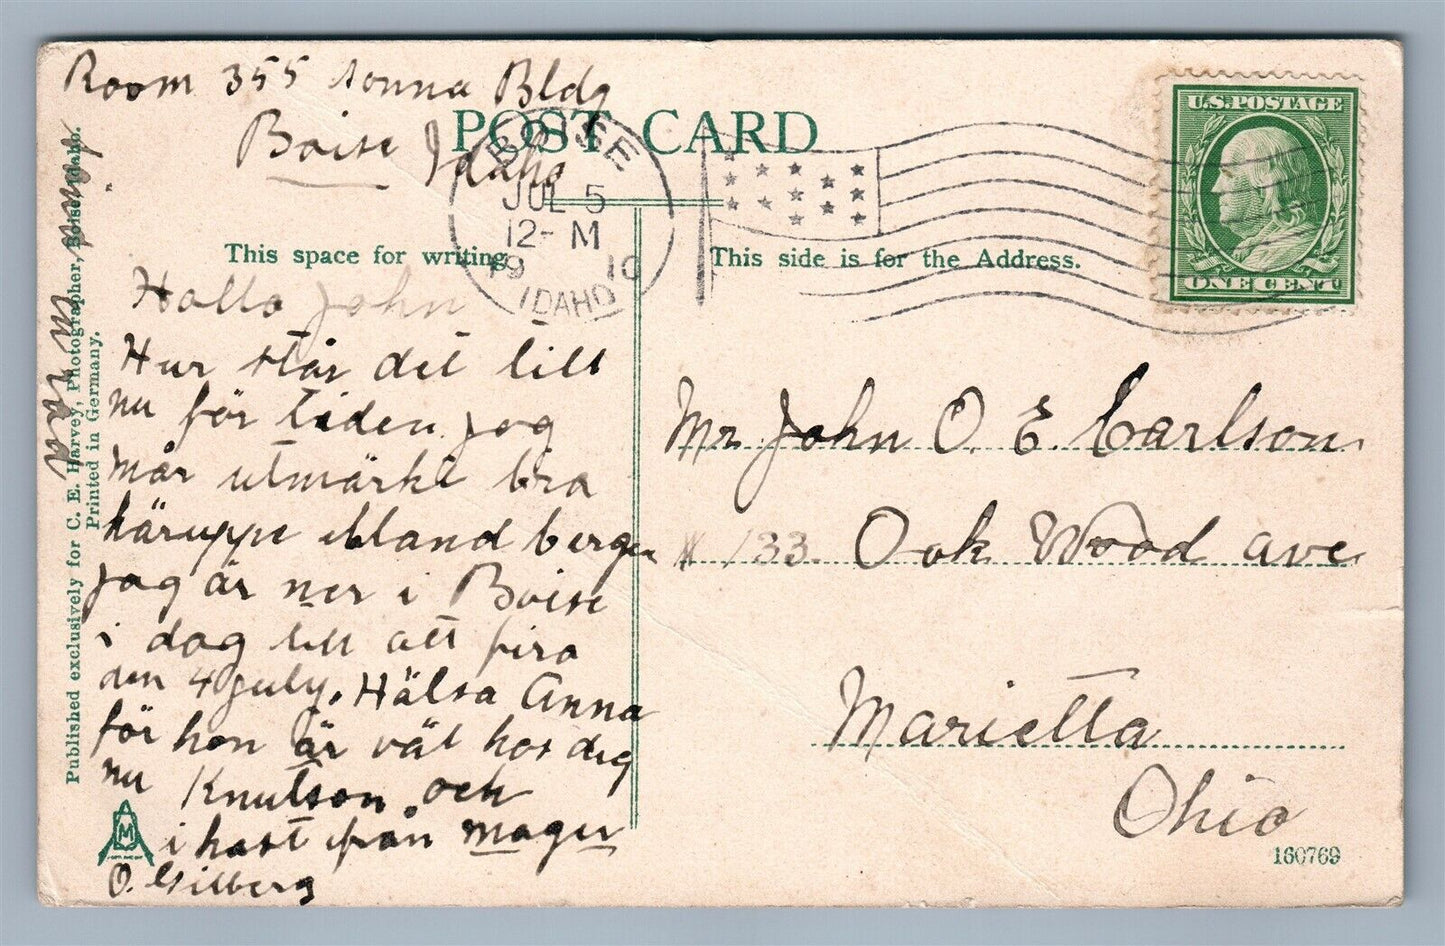 Room 355 Sonna Bldg
Boise Idaho
POST CARD
BOISE
JUL 5
12- M
1910
IDAHO
U.S. POSTAGE
ONE CENT
This space for writing
This side is for the Address.
Hallo John
Hur står det till
nu för tiden jag
mår utmärkt bra
häruppe ibland bergen
jag är ner i Boise
i dag till att fira
den 4 July. Hälsa Anna
för hon är väl hos dig
nu Knutson och
i hast från
O. Gilberg
Mr John O. E. Carlson
# 133. Oak Wood ave
Marietta
Ohio
160769
Published exclusively for C. E. Harvey, Photographer, Boise, Idaho.
Printed in Germany.